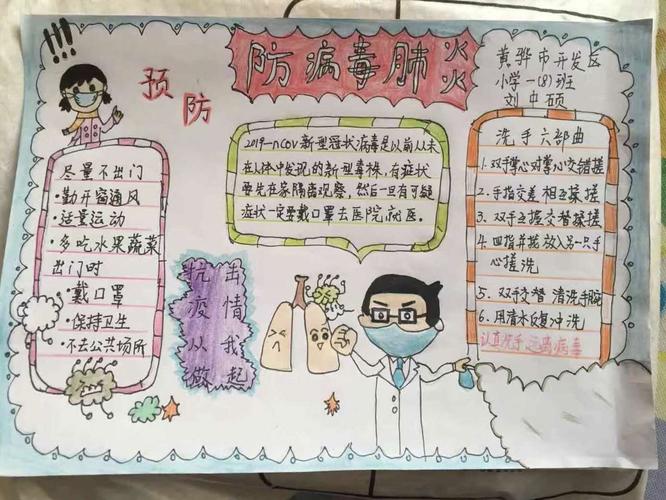 !!!
预防
防病毒肺炎
黄骅市开发区
小学一(8)班
刘中硕
尽量不出门
·勤开窗通风
·适量运动
·多吃水果蔬菜
出门时
·戴口罩
·保持卫生
·不去公共场所
2019-nCOV新型冠状病毒是以前从未
在人体中发现的新型毒株,有症状
要先在家隔离观察,然后一旦有可疑
症状一定要戴口罩去医院就医。
抗击
疫情
从我
做起
洗手六部曲
1.双手掌心对掌心交错搓
2.手指交差相互揉搓
3.双手互握交替揉搓
4.四指并拢放入另一只手
心搓洗
5.双手交替清洗手腕
6.用清水反复冲洗
认真洗手远离病毒